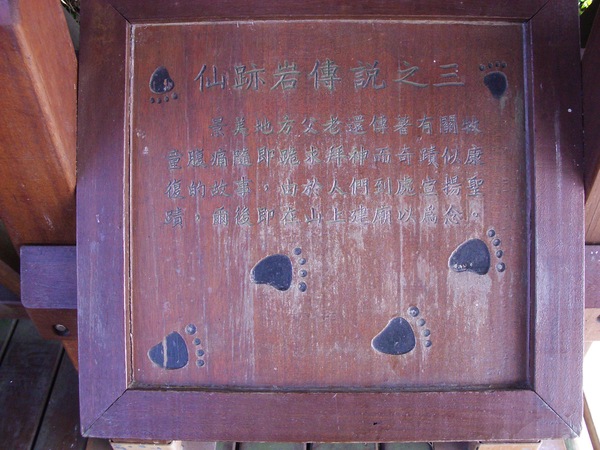 仙跡岩傳說之三
景美地方父老還傳著有關牧
童腹痛隨即跪求拜神而奇蹟似康
復的故事，由於人們到處宣揚聖
蹟，爾後即在山上建廟以為念。